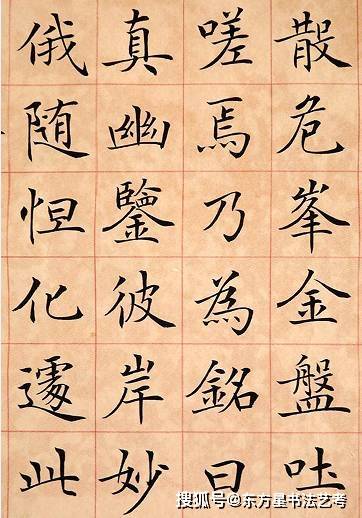 散危峯金盤吐
嗟焉乃為銘曰
真幽鑒彼岸妙
俄随怛化遽此
搜狐号@东方星书法艺考